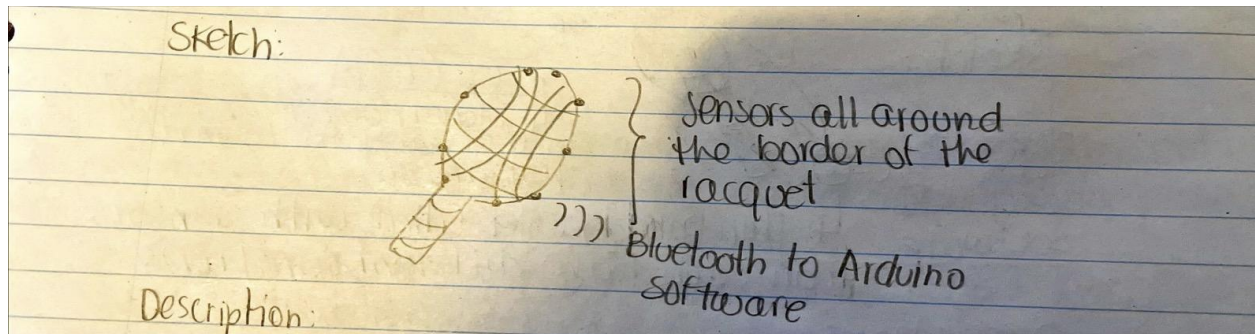 Sketch:
Sensors all around
the border of the
racquet
Bluetooth to Arduino
software
Description: